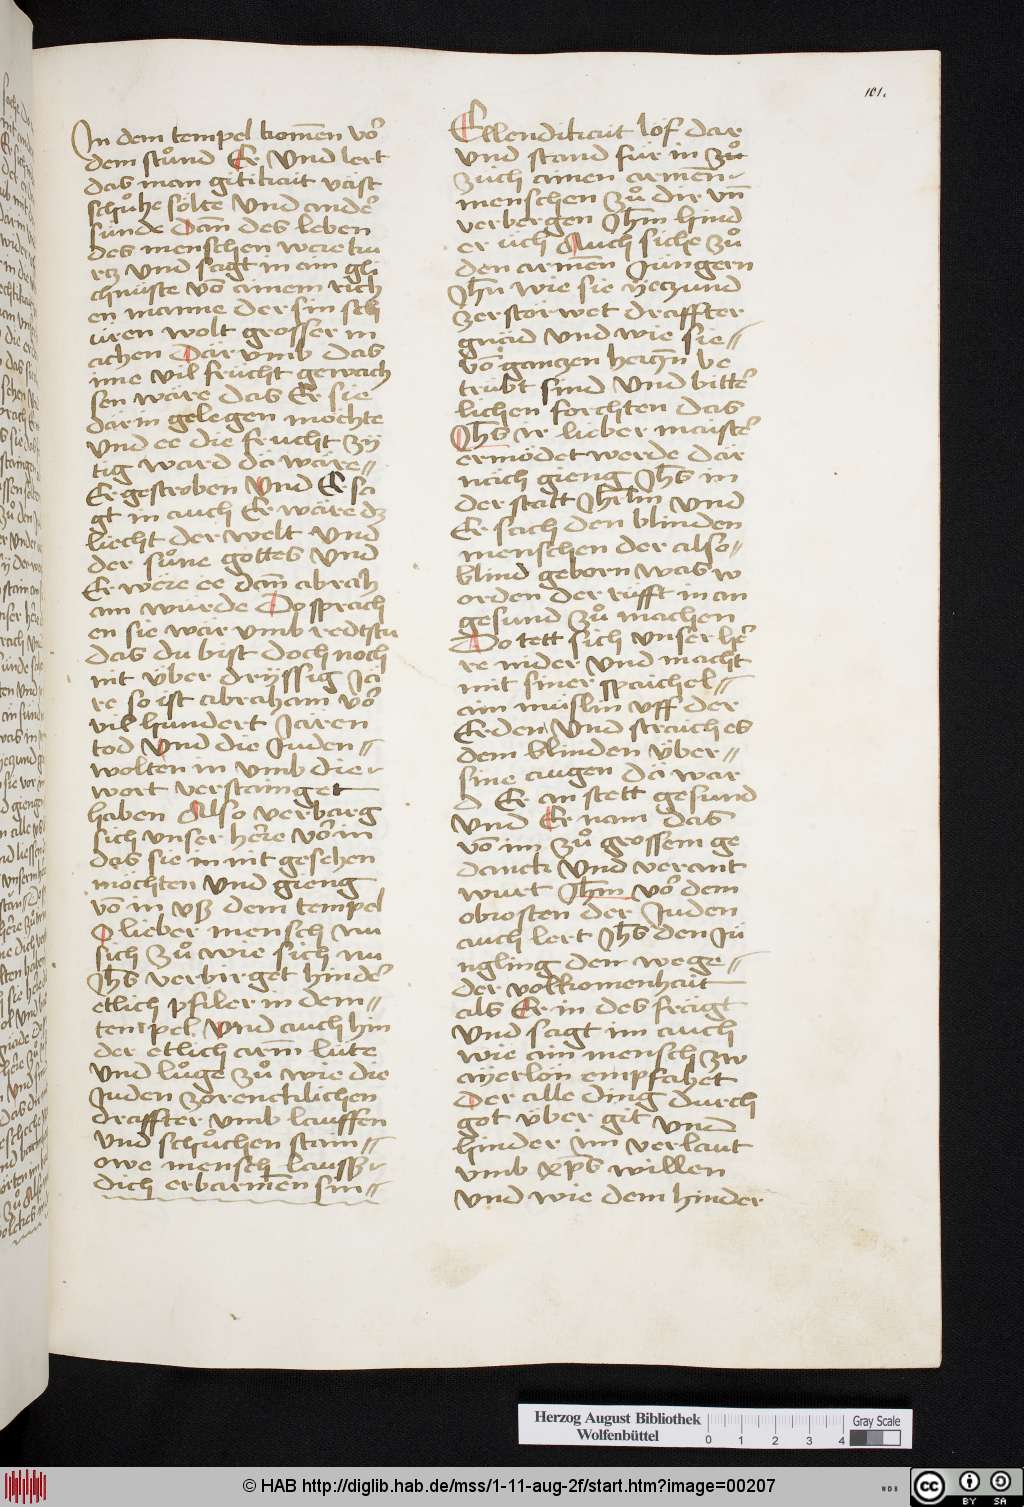 101.
In dem tempel komen̄ vor̄
dem stůnd Er Und lert
das man gitikait väst
schůhe sölte Und ander̄
sünde Dan̄ des leben
des menschen were ku
rcz vnd sagt in ain gli
chnüste vo᷑ ainem rich
en manne der sin sch
üren wolt grosser m
achen Där vmb das
ime vil frücht gewach
sen wäre das Er sie
därin gelegen möchte
vnd ee die frucht zÿ
tig ward dä wäre〃
Er gestroben Und Er sa
gt in auch Er wäre dz
liecht der welt Und
der sůne gottes Und
Er were ee dan̄ abrah
am wurde Do sprach
en sie wär vmb redtstu
das du bist doch noch
nit über drÿssig Jä
re so ist abraham vor̄
vil hundert Jaren
tod Vnd die Juden〃
wolten in vmb die
wort verstainget
haben Also verbarg
sich vnser herre vor̄ in
das sie in nit gesehen
möchten vnd gieng
vo᷑ in vß dem tempel
O lieber mensch nu
sich zů wie sich nu
Jh̄s verbirget hinder̄
etlich pfiler in dem〃
tempel Vnd auch hin
der etlich arm̄ lüte
vnd lůge zů wie die
Juden zörencklichen
draffter vmb lauffen
vnd schůchen stain〃
owe mensch lausß
dich erbarmen̄ sin〃
Ellendikait löf dar
vnd stand für in zů
zuch ainen armen̄
menschen zů dir vn̄
verbergen Jh̄m hind
er üch Auch siche zů
den armen̄ Jüngern
Jh̄u wie sie yeczund
zerstörwet draffter
gnäd vnd wie sie〃
vo᷑ ganczen hercz̄n be
trübt sind Vnd bitter̄
lichen forchten das
Jh̄s ir lieber maister̄
ermödet werde där
näch gieng Jh̄s in
der statt Jhr̄lm vnd
Er sach den blinden
menschen der also〃
blind geborn was w
orden der rüfft in an
gesund zů machen
Do tett sich vnser her̄
re nider vnd macht
mit siner spaichel〃
ain müslin vff der
Erden Vnd straich es
dem blinden über〃
sine augen dä war
d Er an stett gesund
vnd Er nam das
vo᷑ im zů grossem ge
danck vnd verant
wurt Jh̄m vor̄ dem
obrosten der Juden
auch lert Jh̄s den Jü
ngling den wege〃
der volkomenhait
als Er in des frägt
vnd sagt im auch
wie ain mensch zw
aÿerlön empfahet
Der alle ding durch
got über git vnd
hinder im verlaut
vmb xp̄s willen
vnd wie dem hinder
Herzog August Bibliothek
Wolfenbüttel
0 1 2 3 4
Gray Scale
© HAB http://diglib.hab.de/mss/1-11-aug-2f/start.htm?image=00207
cc BY SA